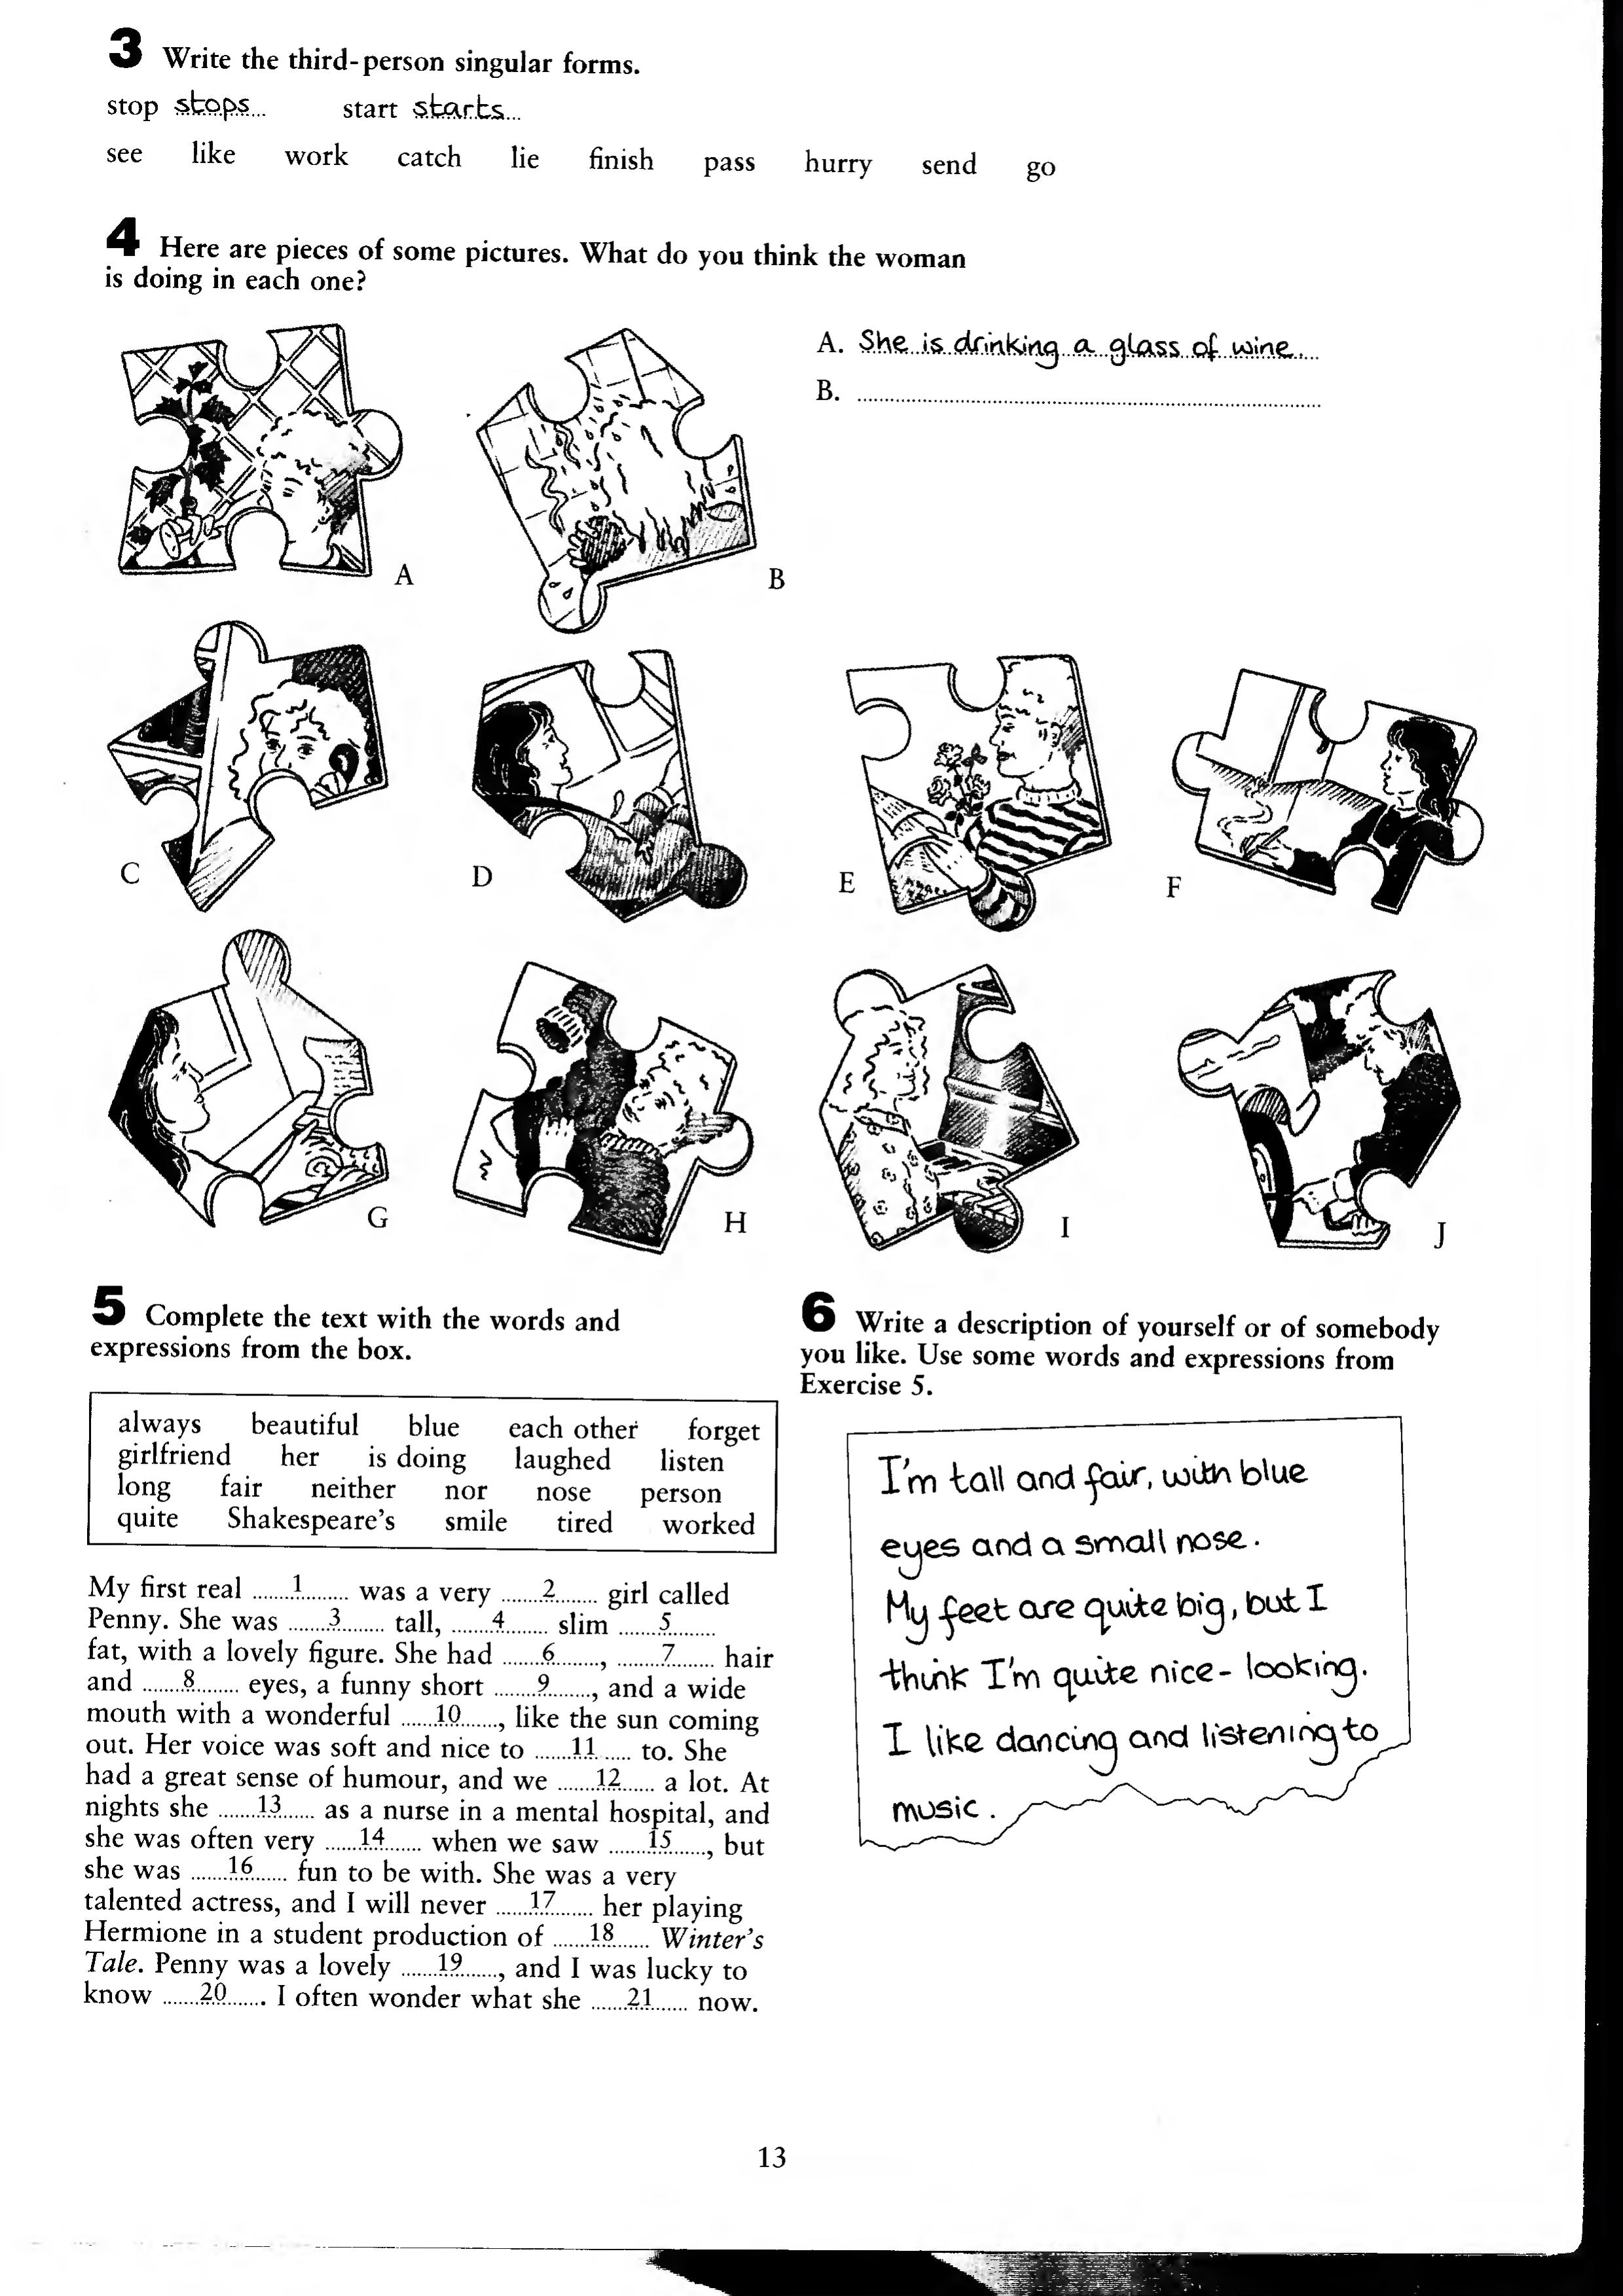 3 Write the third-person singular forms.
stop stops start starts
see like work catch lie finish pass hurry send go
4 Here are pieces of some pictures. What do you think the woman
is doing in each one?
A. She is drinking a glass of wine.
B.
A
B
C
D
E
F
G
H
I
J
5 Complete the text with the words and
expressions from the box.
always beautiful blue each other forget
girlfriend her is doing laughed listen
long fair neither nor nose person
quite Shakespeare's smile tired worked
My first real ......1...... was a very ......2...... girl called
Penny. She was ......3...... tall, ......4...... slim ......5......
fat, with a lovely figure. She had ......6......, ......7...... hair
and ......8...... eyes, a funny short ......9......, and a wide
mouth with a wonderful ......10......, like the sun coming
out. Her voice was soft and nice to ......11...... to. She
had a great sense of humour, and we ......12...... a lot. At
nights she ......13...... as a nurse in a mental hospital, and
she was often very ......14...... when we saw ......15......, but
she was ......16...... fun to be with. She was a very
talented actress, and I will never ......17...... her playing
Hermione in a student production of ......18...... Winter's
Tale. Penny was a lovely ......19......, and I was lucky to
know ......20....... I often wonder what she ......21...... now.
6 Write a description of yourself or of somebody
you like. Use some words and expressions from
Exercise 5.
I'm tall and fair, with blue
eyes and a small nose.
My feet are quite big, but I
think I'm quite nice-looking.
I like dancing and listening to
music.
13